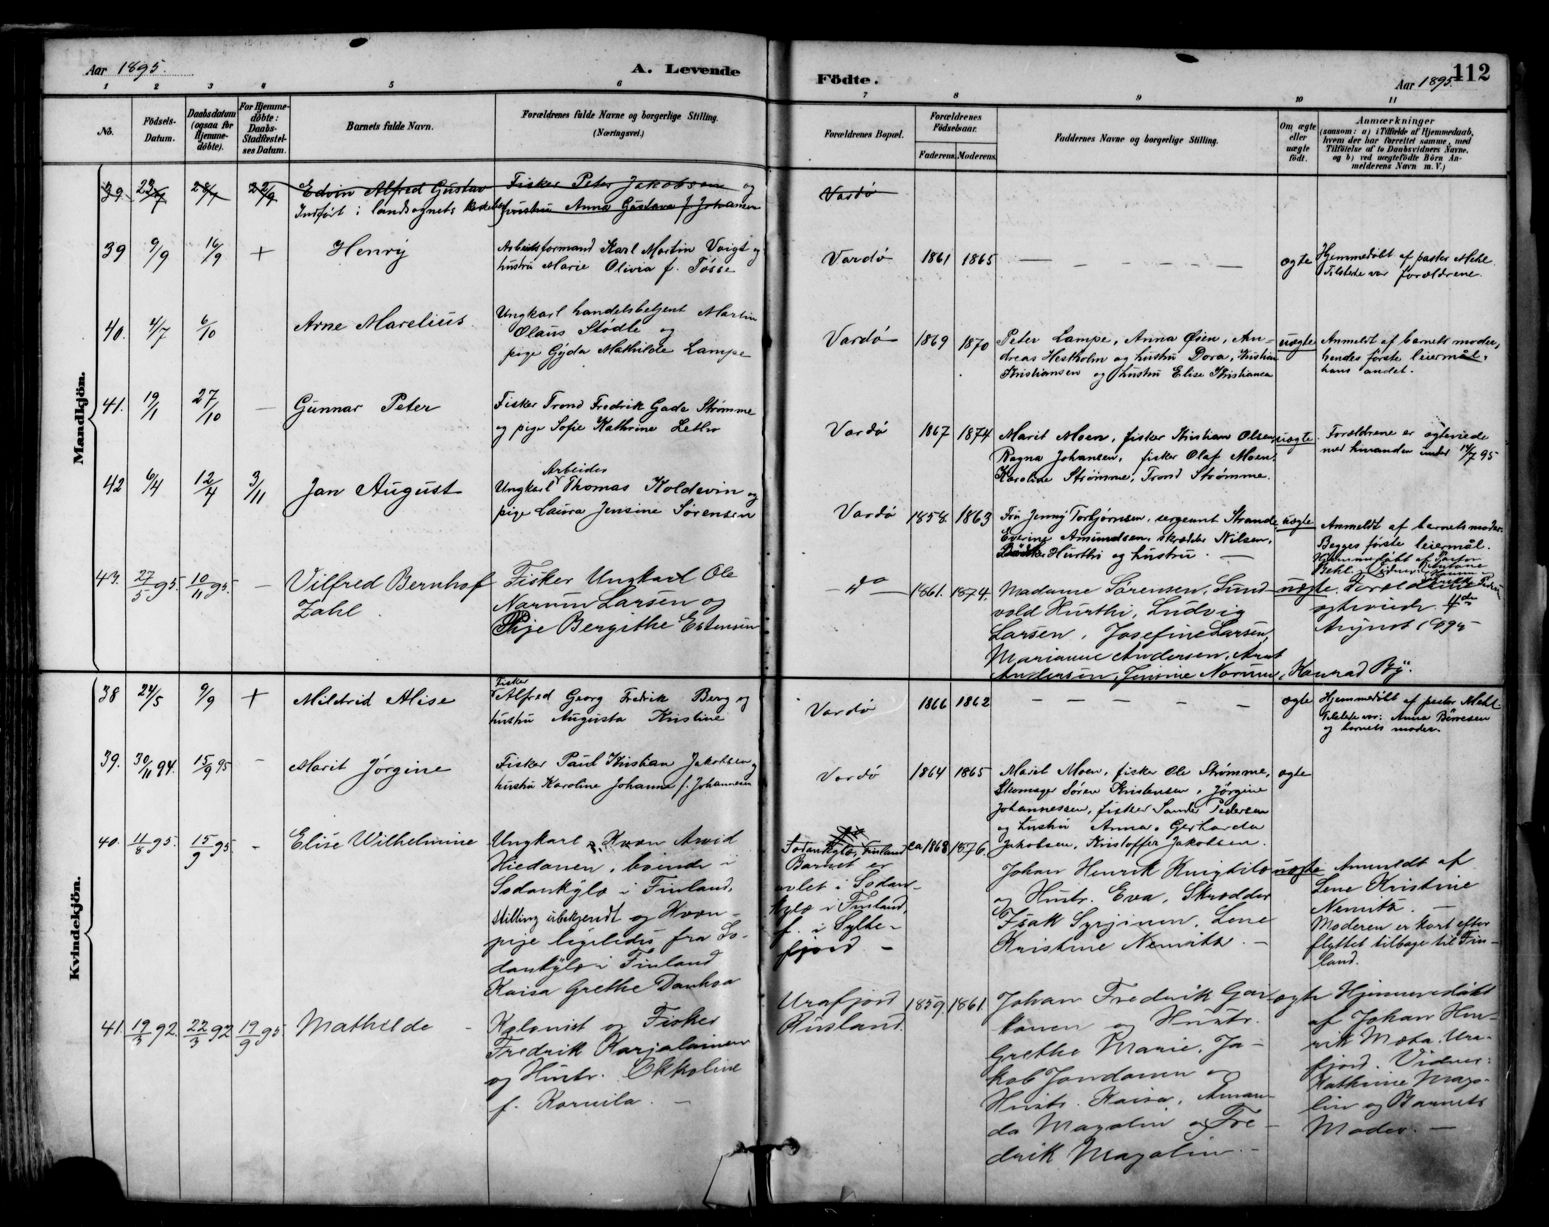 Aar 1895.
A. Levende
Födte.
Aar 1895.
112
1 2 3 4 5 6 7 8 9 10 11
No.
Födsels-Datum.
Daabsdatum (ogsaa for Hjemme-döbte).
For Hjemme-döbte: Daabs-Stadfæstel-ses Datum.
Barnets fulde Navn.
Forældrenes fulde Navne og borgerlige Stilling. (Næringsvei.)
Forældrenes Bopæl.
Forældrenes Födselsaar.
Faderens. Moderens.
Faddernes Navne og borgerlige Stilling.
Om ægte eller uægte födt.
Anmærkninger (saasom: a) i Tilfælde af Hjemmedaab, hvem der har forrettet samme, med Tilföielse af to Daabsvidners Navne, og b) ved uægtefödte Börn An-melderens Navn m. V.)
Mandkjön.
39 Edvin Alfred Gustav Fisker Peter Jakobsen og Vardø
Indført i landsognets hustru Anna Gustava f. Johansen
39 9/9 16/9 + Henry
Arbeidsformand Karl Martin Voigt og
hustru Marie Olivia f. Tösse
Vardø 1861 1865 — ægte
Hjemmedøbt af pastor Mehl.
Tilstede var forældrene.
40. 4/7 6/10 Arne Marelius.
Ungkarl handelsbetjent Martin
Olaus Stødle og
pige Gyda Mathilde Lampe
Vardø 1869 1870
Peter Lampe, Anna Øien, An-
dreas Hestholm og hustru Dora, Kristian
Kristiansen og hustru Elise Kristiansen
uægte
Anmeldt af barnets moder,
hendes første leiermål,
hans andet.
41. 19/1 27/10 — Gunnar Peter
Fisker Trond Fredrik Gade Strømme
og pige Sofie Kathrine
Vardø 1867 1874
Marit Moen, fisker Kristian Olsen
Ragna Johansen, fisker Olaf Moen,
Karoline Strømme, Trond Strømme.
uægte
Forældrene er ægteviede
med hinanden under 14/7 95
42 6/4 12/4 3/11 Jan August
Arbeider
Ungkarl Thomas Koldevin og
pige Laura Jensine Sørensen
Vardø 1858. 1863
Fru Jenny Torbjørnsen, sergeant Strande
Everine Amundsen, skrædder Nilsen,
Hurthi og hustru. —
uægte
Anmeldt af barnets moder.
Begges første leiermål.
43. 27/5 95. 10/11 95. — Vilfred Bernhof
Zahl.
Fisker Ungkarl Ole
Narum Larsen og
Pige Bergithe Estensen
— do — 1861. 1874.
Madame Sørensen, Sund-
vold Hurthi, Ludvig
Larsen, Josefine Larsen,
Marianne Andersen, Arnt
Andersen, Jensine Norum, Konrad By.
uægte.
Forældrene
ægteviede 4de
August 1895
Kvindekjön.
38 24/5 9/9 + Mildrid Alise
Fisker
Alfred Georg Fredrik Berg og
hustru Augusta Kristine
Vardø 1866 1862 — ægte
Hjemmedøbt af pastor Mehl
Tilstede var: Anna Børresen
og barnets moder.
39. 30/11 94. 15/9 95 - Marit Jørgine
Fisker Paul Kristian Jakobsen og
hustru Karoline Johanna f. Johannesen
Vardø 1864 1865
Marit Moen, fisker Ole Strømme,
Skomager Søren Kristensen, Jørgine
Johannessen, fisker Sander Pedersen
og hustru Anna, Gerharda
Jakobsen, Kristoffer Jakobsen.
ægte
40. 11/8 95. 15/9 95. - Elise Wilhelmine
Ungkarl Kvæn Arvid
Hiedanen, boende i
Sodankylæ i Finland,
stilling ubekjendt og Kvæn-
pige ligeledes fra So-
dankylæ i Finland
Kaisa Grethe
Sodankylæ, Finland
Barnet er
avlet i Sodan-
kylæ i Finland,
f. i Sylte-
fjord. -
ca 1868 1876.
Johan Henrik
og Hustr. Eva, Skrædder
Isak Syrjinen, Lene
Kristine Nemita. —
uægte
Anmeldt af
Lene Kristine
Nemita. —
Moderen er kort efter
flyttet tilbage til Fin-
land.
41. 19/3 92. 22/3 92 19/9 95 Mathilde -
Kolonist og Fisker
Fredrik Karjalainen
og Hustr. Ekkoline
f. Kornila. —
Urafjord
Rusland
1859. 1861.
Johan Fredrik Gor-
konen og Hustr.
Grethe Marie, Ja-
kob Jondanen og
Hustr. Kaisa, Aman-
da Magalin og Fre-
drik Magalin. -
ægte
Hjemmedøbt
af Johan Hen-
rik Mota, Ura-
fjord. Vidner:
Kathrine Maga-
lin og Barnets
Moder. —